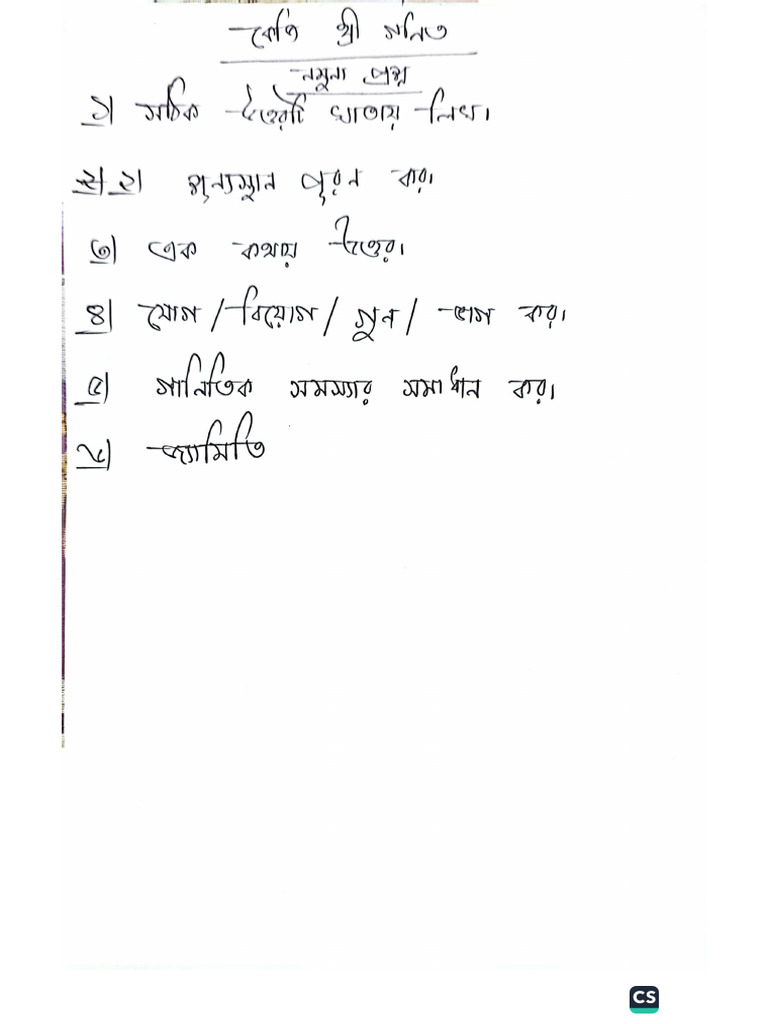 কেজি থ্রী গনিত
নমুনা প্রশ্ন
১। সঠিক উত্তরটি খাতায় লিখ।
২। শূন্যস্থান পূরন কর।
৩। এক কথায় উত্তর।
৪। যোগ/বিয়োগ/গুন/ভাগ কর।
৫। গানিতিক সমস্যার সমাধান কর।
৬। জ্যামিতি
CS